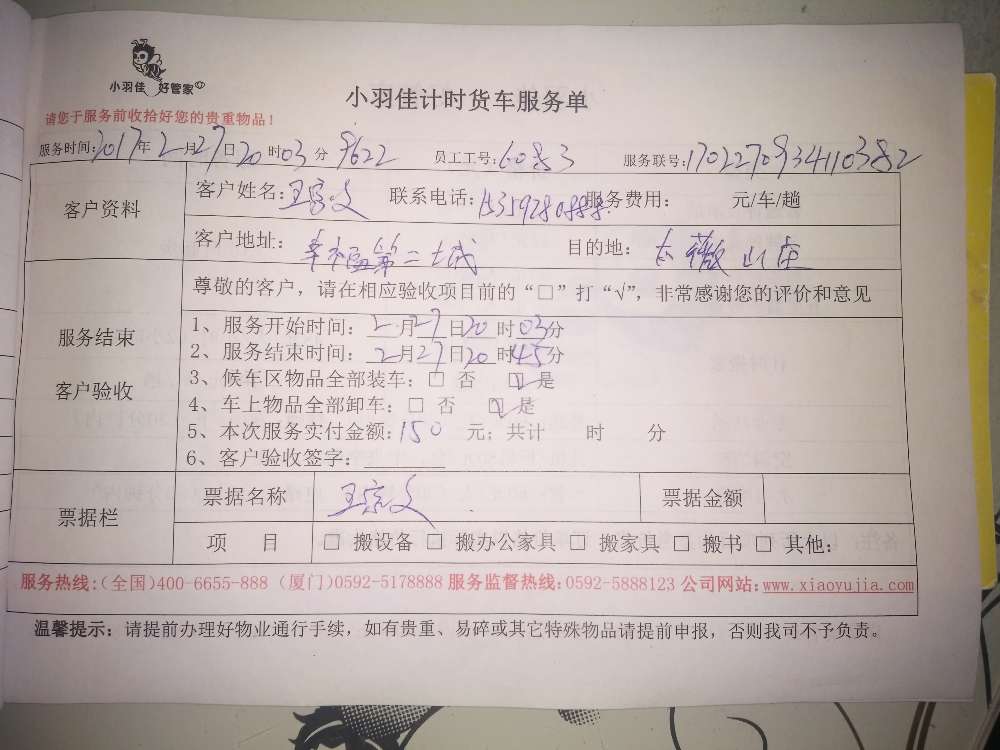 小羽佳 好管家
小羽佳计时货车服务单
请您于服务前收拾好您的贵重物品!
服务时间:2017年2月27日20时03分 9622 员工工号:60883 服务联号:1702270934110382
客户资料 客户姓名:王 文 联系电话:15359280888 服务费用: 元/车/趟
客户地址: 幸福第二城 目的地: 太薇山庄
尊敬的客户,请在相应验收项目前的“□”打“√”,非常感谢您的评价和意见
服务结束
客户验收
1、服务开始时间:2月27日20时03分
2、服务结束时间:2月27日20时45分
3、候车区物品全部装车:□ 否 ☑ 是
4、车上物品全部卸车:□ 否 ☑ 是
5、本次服务实付金额:150 元;共计 时 分
6、客户验收签字:
票据栏 票据名称 王 文 票据金额
项 目 □ 搬设备 □ 搬办公家具 □ 搬家具 □ 搬书 □ 其他:
服务热线:(全国)400-6655-888 (厦门)0592-5178888 服务监督热线:0592-5888123 公司网站:www.xiaoyujia.com
温馨提示:请提前办理好物业通行手续,如有贵重、易碎或其它特殊物品请提前申报,否则我司不予负责。